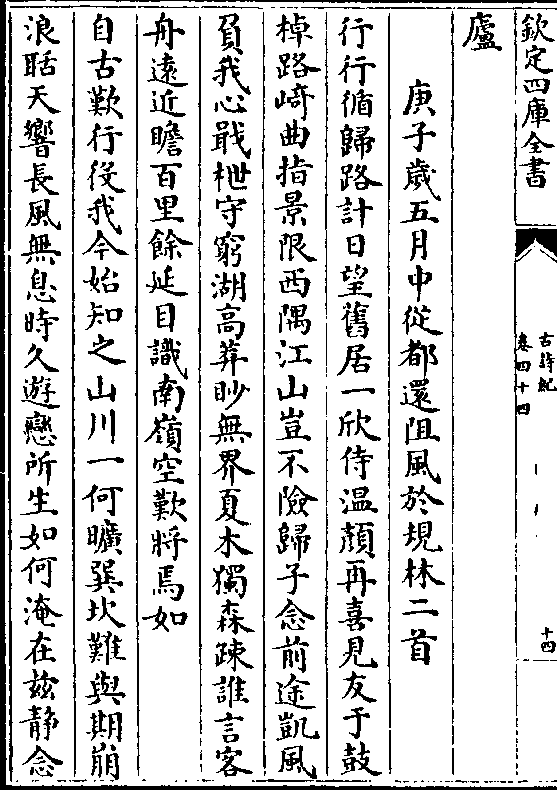 欽定四庫全書
古詩紀
卷四十四
十四
廬
庚子歲五月中從都還阻風於規林二首
行行循歸路計日望舊居一欣侍温顔再喜見友于鼓
棹路崎曲指景限西隅江山豈不險歸子念前途凱風
負我心戢枻守窮湖高莽眇無界夏木獨森疎誰言客
舟遠近瞻百里餘延目識南嶺空歎將焉如
自古歎行役我今始知之山川一何曠巽坎難與期崩
浪聒天響長風無息時久遊戀所生如何淹在兹静念